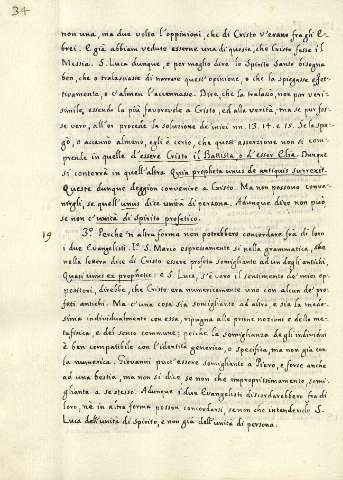 34
non una, ma due volte l'oppinioni, che di Cristo v'erano fra gli E-
brei. E già abbiam veduto esserne una di queste, che Cristo fosse il
Messia. S. Luca dunque, o per meglio dire lo Spirito Santo bisogna
ben, che o tralasciasse di narrare quest'opinione, o che la spiegasse effet-
tivamente, o c'almen l'accennasse. Dire, che la tralasciò, non par veri-
simile, essendo la più favorevole a Cristo, ed alla verità, ma se pur fos-
se vero, all'or procede la soluzione de' miei nn. 13. 14. e 15. Se la spie-
gò, o accennò almeno, egli è certo, che quest'asserzione non si com-
prende in quelle d'essere Cristo il Battista, o d'esser Elia. Dunque
si conterrà in quell'altra. Quia propheta unus de antiquis surrexit.
Queste dunque deggion convenire a Cristo. Ma non possono conve-
nirgli, se quell'unus dice unità di persona. Adunque dire non può,
se non c'unità di Spirito profetico.
19 3º. Perche 'n altra forma non potrebbero concordare fra di loro
i due Evangelisti. Iº S. Marco espressamente sì nella grammatica, che
nella lettera dice di Cristo essere profeta somigliante ad un degli antichi,
Quasi unus ex prophetis: e S. Luca, s'è vero il sentimento de' miei op-
positori, direbbe, che Cristo era numericamente uno con alcun de' pro-
feti antichi. Ma c'una cosa sia somigliante ad altra, e sia la mede-
sima individualmente con essa, ripugna alle prime nozioni e della me-
tafisica, e del senso commune; poiche la somiglianza degli individui
è ben compatibile con l'identità generica, o specifica, ma non già con
la numerica. Giovanni può essere somigliante a Piero, e forse anche
ad una bestia, ma non si dice se non che impropriissimamente, somi-
gliante a se stesso. Adunque i due Evangelisti discordarebbero fra di
loro, nè in altra forma posson concordarsi, se non che intendendo S.
Luca dell'unità di Spirito, e non già dell'unità di persona.